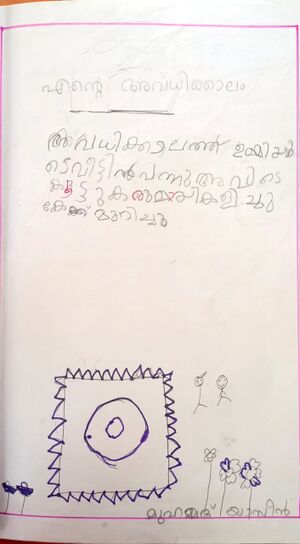 എന്റെ അവധിക്കാലം
അവധിക്കാലത്ത് ഉമ്മിയു
ടെവീട്ടിൽവന്നു.അവിടെ
കൂട്ടുകരുമായികളിച്ചു
കേക്ക് മുറിച്ചു
മുഹമ്മദ് യാസീൻ